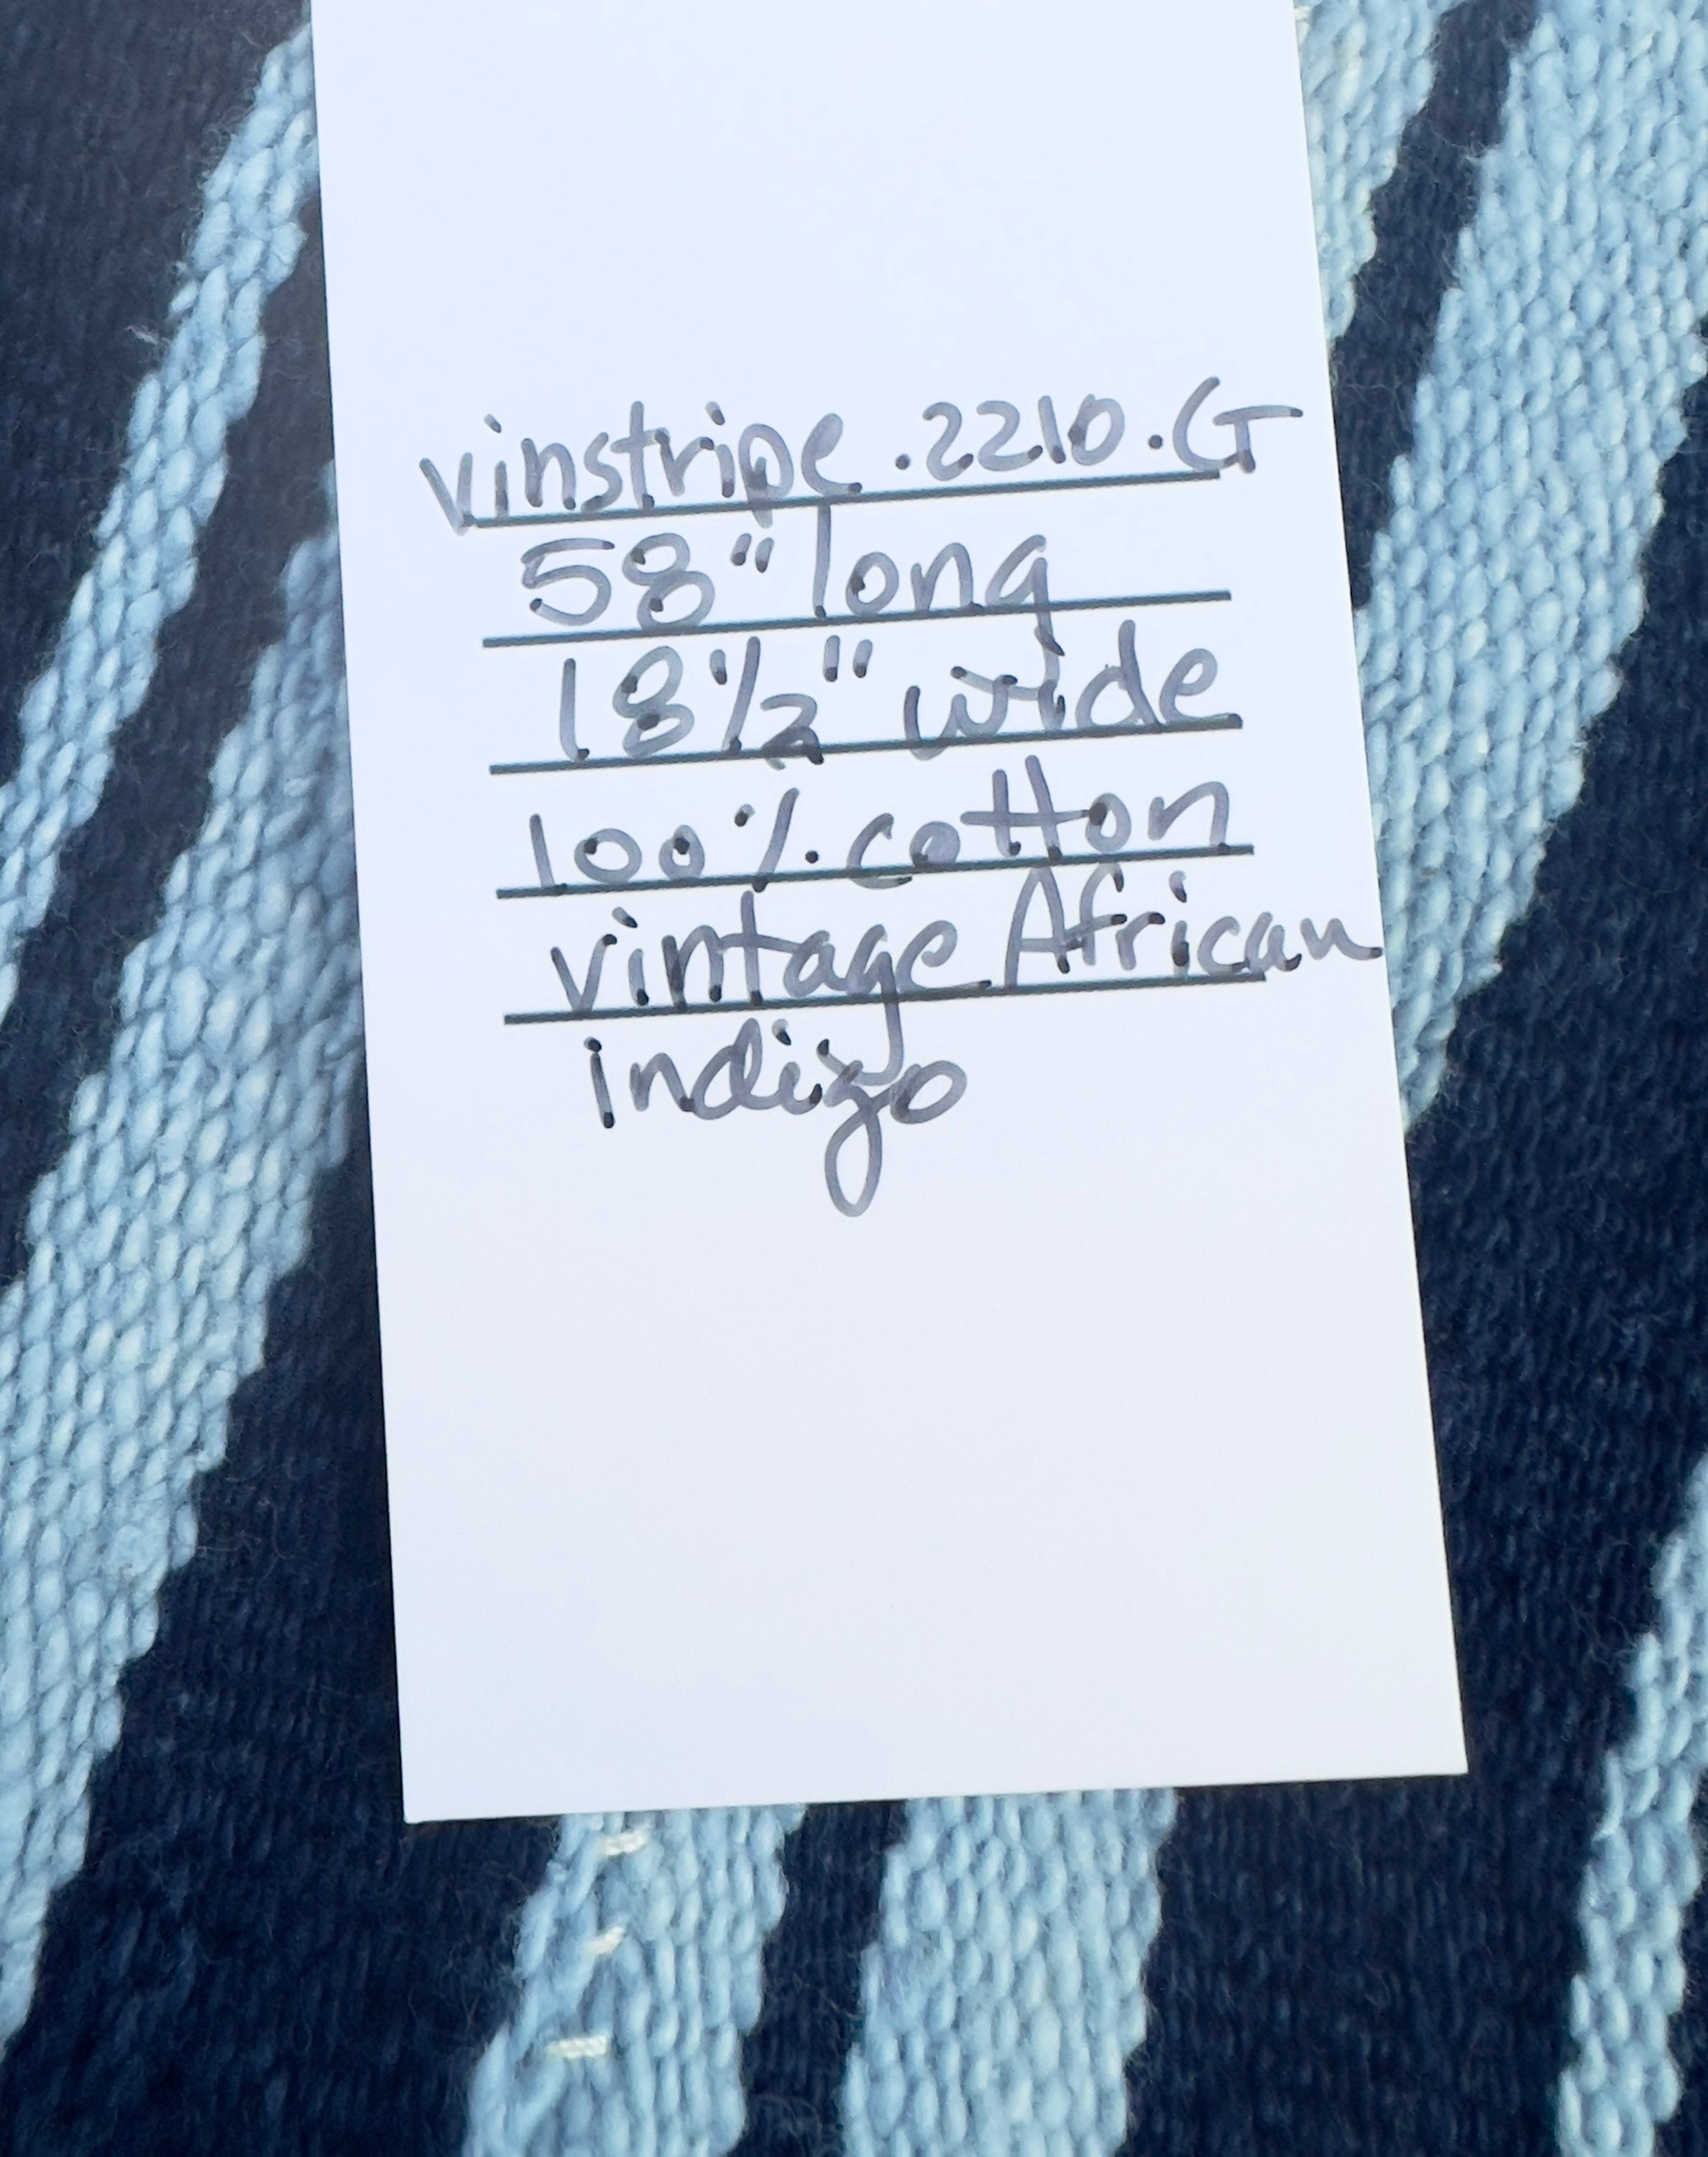 vinstripe.2210.G
58" long
18½" wide
100% cotton
vintage African
indigo